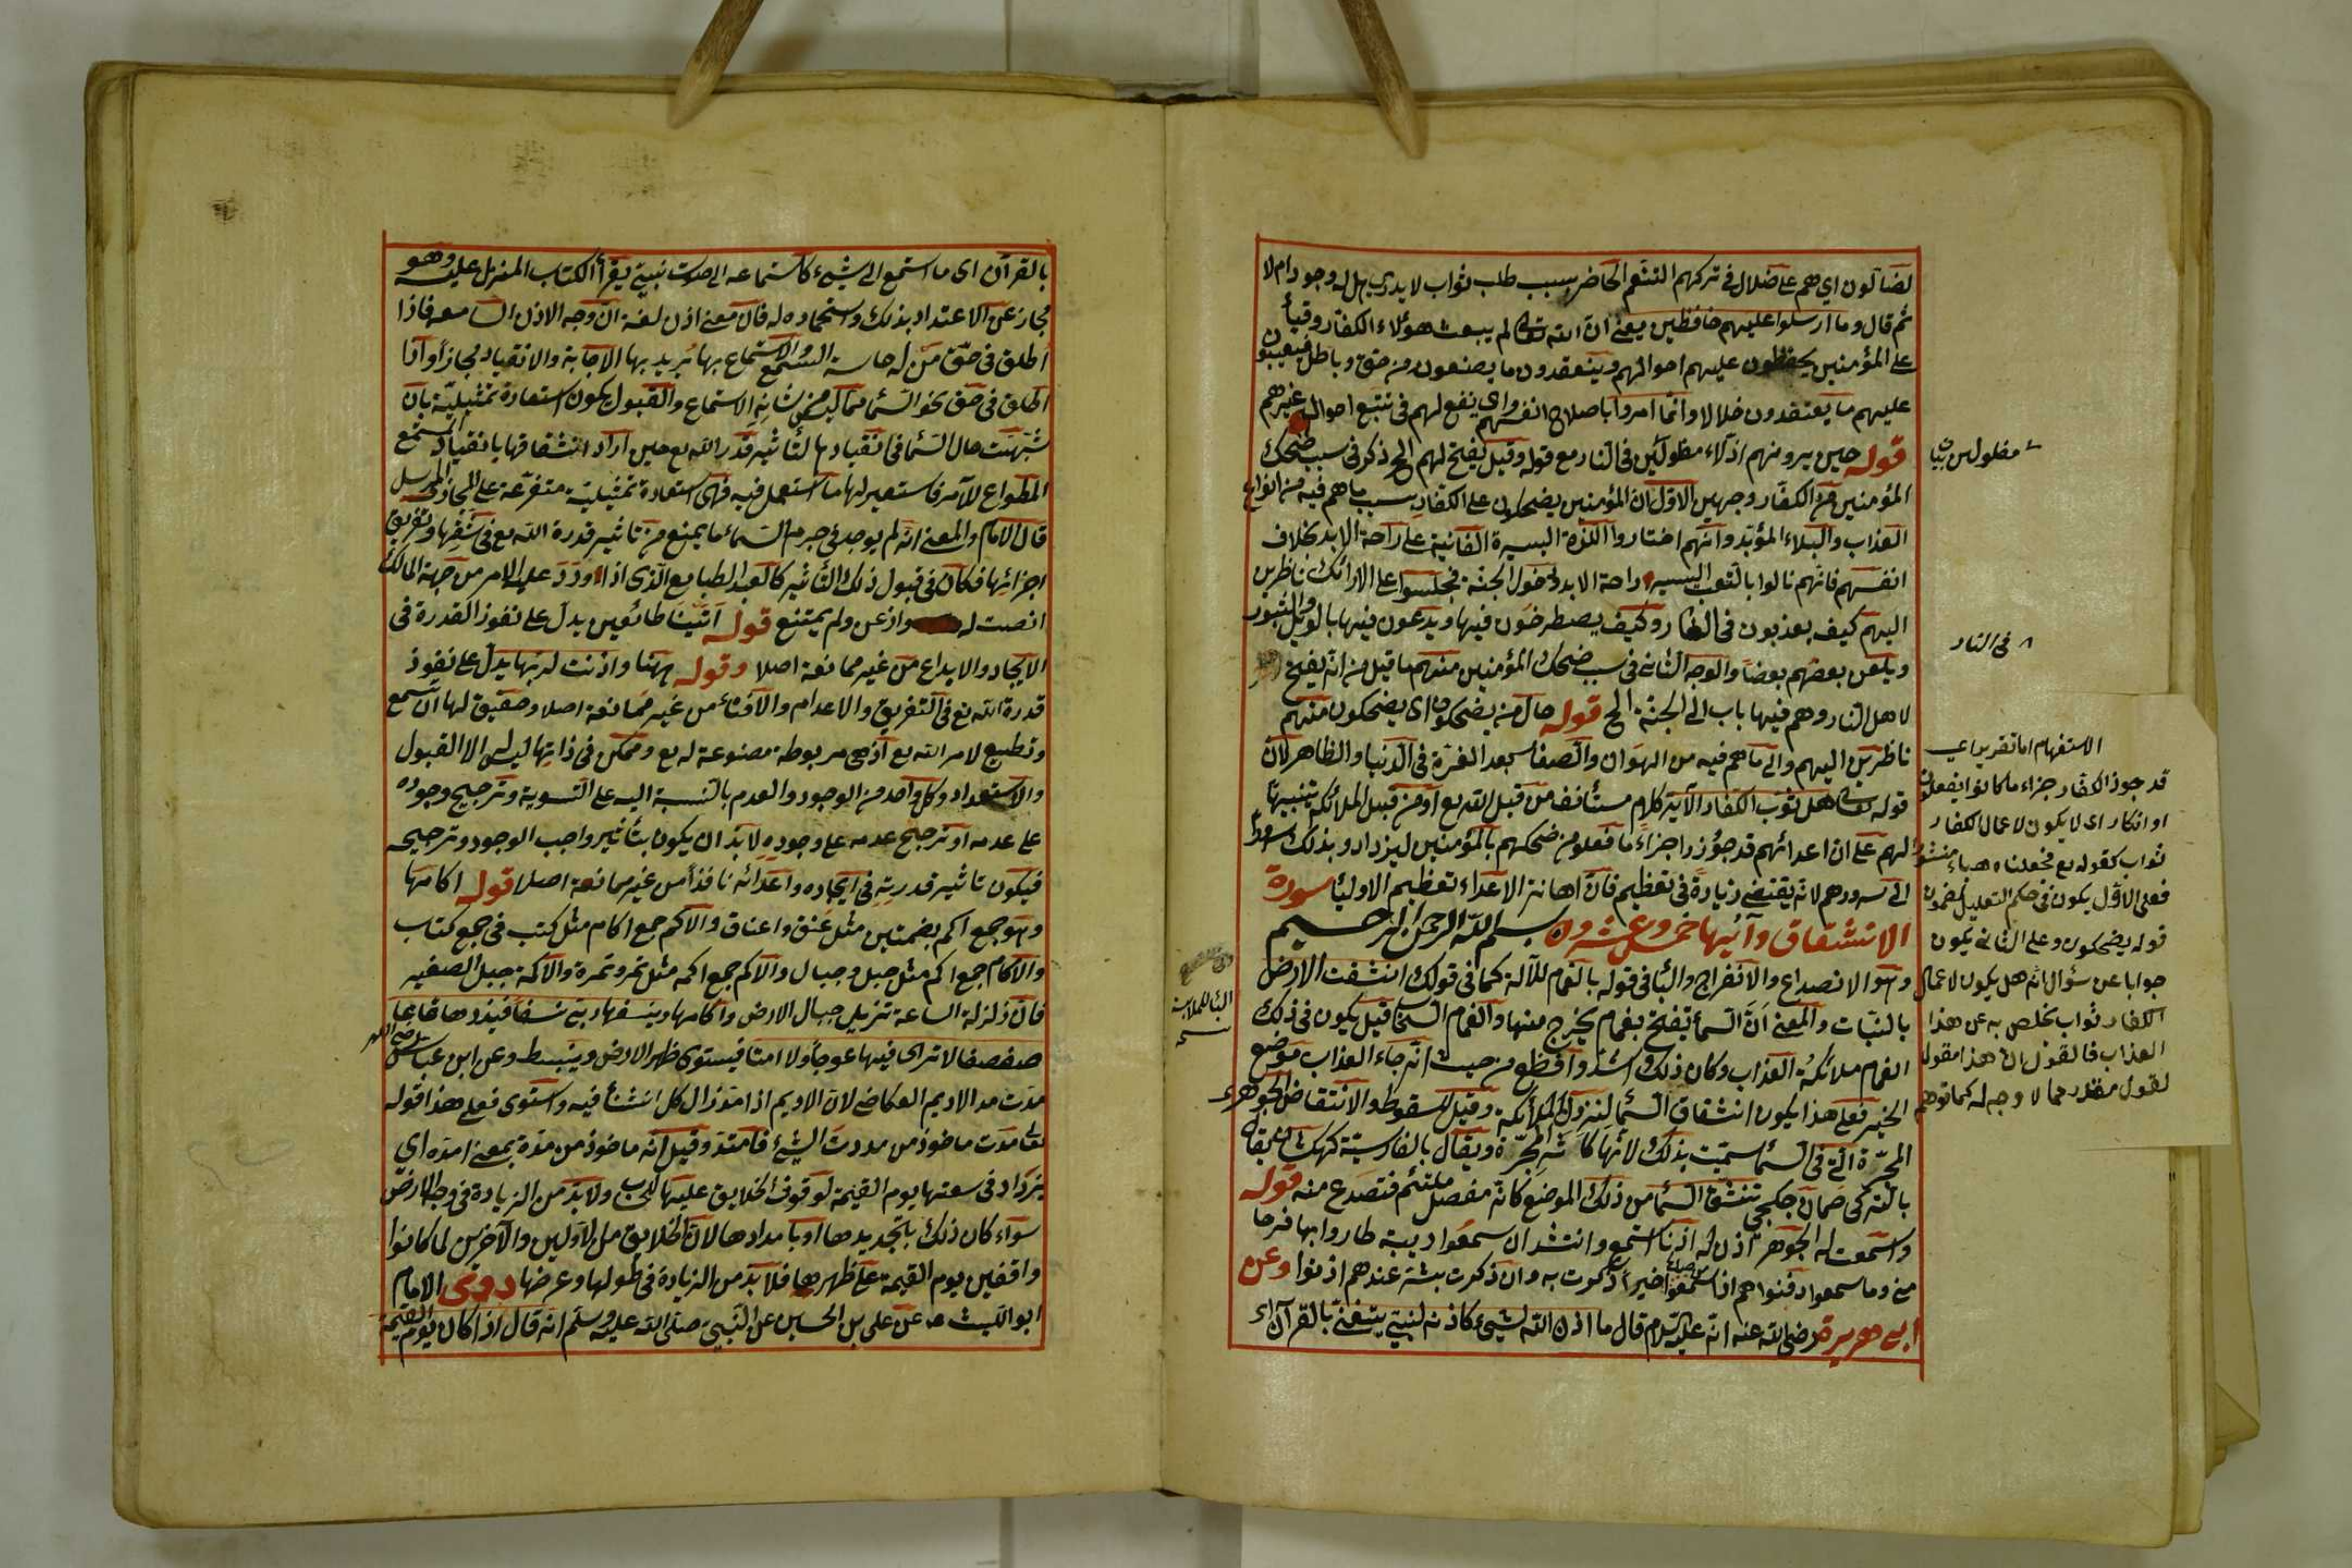 لضالون اي هم على ضلال في تركهم التنعم الحاضر بسبب طلب ثواب لا يدرى هل له وجود ام لا
ثم قال وما ارسلوا عليهم حافظين يعني ان الله تعالى لم يبعث هؤلاء الكفار رقباء
على المؤمنين يحفظون عليهم احوالهم ويتفقدون ما يصنعون من حق وباطل فيعيبون
عليهم ما يعتقدون ضلالا وانما امروا باصلاح انفسهم واي نفع لهم في تتبع احوال غيرهم
قوله حين يرونهم اذلاء مغلولين في النار مع قوله وقيل يفتح لهم الخ ذكر في سبب ضحك
المؤمنين من الكفار وجهين الاول ان المؤمنين يضحكون على الكفار بسبب ما هم فيه من انواع
العذاب والبلاء المؤبد وانهم اختاروا اللذة اليسيرة الفانية على راحة الابد بخلاف
انفسهم فانهم نالوا بالتعب اليسير راحة الابد دخول الجنة فجلسوا على الارائك ناظرين
اليهم كيف يعذبون في النار وكيف يصطرخون فيها ويدعون فيها بالويل والثبور
ويلعن بعضهم بعضا والوجه الثاني في سبب ضحك المؤمنين منهم ما قيل من انه يفتح
لاهل النار وهم فيها باب الى الجنة الخ قوله حال من يضحكون اي يضحكون منهم
ناظرين اليهم والى ما هم فيه من الهوان والصغار بعد العزة في الدنيا والظاهر ان
قوله تعالى هل ثوب الكفار الآية كلام مستأنف من قبل الله تع او من قبل الملائكة تنبيها
لهم على ان اعدائهم قد جوزوا جزاء ما فعلوا من ضحكهم بالمؤمنين ليزداد بذلك سرورا
الى سرورهم لانه يقتضي زيادة في تعظيم فان اهانة الاعداء تعظيم الاولياء سورة
الانشقاق وآيها خمس وعشرون بسم الله الرحمن الرحيم
وهو الانصداع والانفراج والباء في قوله بالغمام للآلة كما في قولك انشقت الارض
بالنبات والمعنى ان السماء تفتح بغمام يخرج منها والغمام السحاب قيل يكون في ذلك
الغمام ملائكة العذاب وكان ذلك اشد وافظع من حيث انه جاء العذاب موضع
الخير فعلى هذا يكون انشقاق السماء لنزول الملائكة وقيل للسقوط والانتقاض الجوهري
المجرة التي في السماء سميت بذلك لانها كأثر المجرة ويقال بالفارسية كهكشان ويقال
بالتركي صمان تنشق السماء من ذلك الموضع كانه مفصل ملتئم فتصدع منه قوله
واستمعت له الجوهري اذن له اذنا استمع وانشد ان سمعوا ريبة طاروا بها فرحا
مني وما سمعوا دفنوا هم اذا سمعوا خيرا ذكرت به وان ذكرت بشر عندهم اذنوا وعن
ابي هريرة رضي الله عنه انه عليه السلام قال ما اذن الله لشيء كاذنه لنبي يتغنى بالقرآن اي
مغلولين
في النار
الاستفهام اما تقرير اي
قد جوز الكفار جزاء ما كانوا يفعلون
او انكار اي لا يكون لاعمال الكفار
ثواب كقوله تع فجعلناه هباء منثورا
فعلى الاول يكون في حكم التعليل لمضمون
قوله يضحكون وعلى الثاني يكون
جوابا عن سؤال انه هل يكون لاعمال
الكفار ثواب تخلص به عن هذا
العذاب فالقول ان هذا مقول
لقول مقدر مما لا وجه له كما توهم
الباء للملابسة
بالقرآن اي ما استمع الى شيء كاستماعه الى صوت نبي يقرأ الكتاب المنزل عليه وهو
مجاز عن الاعتداد بذلك واستحماده له فان معنى اذن لغة ان وجه الاذن السامعة فاذا
اطلق في حق من له حاسة السمع والاستماع بها يريد بها الاجابة والانقياد مجازا واذا
اطلق في حق نحو السماء مما ليس من شانه الاستماع والقبول يكون استعارة تمثيلية بان
شبهت حال السماء في انقيادها لتأثير قدرة الله تع حين اراد انشقاقها بانقياد المستمع
المطواع للآمر فاستعير لها ما استعمل فيه فهي استعارة تمثيلية متفرعة على المجاز المرسل
قال الامام والمعنى انه لم يوجد في جرم السماء ما يمنع من تاثير قدرة الله تع في شقها وتفريق
اجزائها فكان في قبول ذلك التأثير كالعبد الطايع الذي اذا ورد عليه الامر من جهة المالك
انصت له واذعن ولم يمتنع قوله اتينا طائعين يدل على نفوذ القدرة في
الايجاد والابداع من غير ممانعة اصلا وقوله ههنا واذنت لربها يدل على نفوذ
قدرة الله تع في التفريق والاعدام والافناء من غير ممانعة اصلا وحقيق لها ان تسمع
وتطيع لامر الله تع اذ هي مربوطة مصنوعة له تع وممكن في ذاتها ليس الا القبول
والاستعداد وكل واحد من الوجود والعدم بالنسبة اليه على التسوية وترجيح وجوده
على عدمه او ترجيح عدمه على وجوده لا بد ان يكون بتأثير واجب الوجود وترجيحه
فيكون تاثير قدرته في ايجاده واعدامه نافذا من غير ممانعة اصلا قوله اكامها
وهو جمع اكم بضمتين مثل عنق واعناق والاكم جمع اكام مثل كتب في جمع كتاب
والاكام جمع اكم مثل جبل وجبال والاكم جمع اكمة مثل ثمر وثمرة والاكمة جبل الصغير
فان زلزلة الساعة تزيل جبال الارض وآكامها وينسفها ربي نسفا فيذرها قاعا
صفصفا لا ترى فيها عوجا ولا امتا فيستوي ظهر الارض وينبسط وعن ابن عباس رضي الله
مدت مد الاديم العكاظي لان الاديم اذا مد زال كل انثناء فيه واستوى فعلى هذا قوله
تعالى مدت ماخوذ من مددت الشيء فامتد وقيل انه ماخوذ من مده بمعنى امده اي
يزداد في سعتها يوم القيمة لوقوف الخلايق عليها للحساب ولا بد من الزيادة في وجه الارض
سواء كان ذلك بتجديدها او بامدادها لان الخلايق من الاولين والآخرين لما كانوا
واقفين يوم القيمة على ظهرها فلا بد من الزيادة في طولها وعرضها روى الامام
ابو الليث عن علي بن الحسين عن النبي صلى الله عليه وسلم انه قال اذا كان يوم القيمة